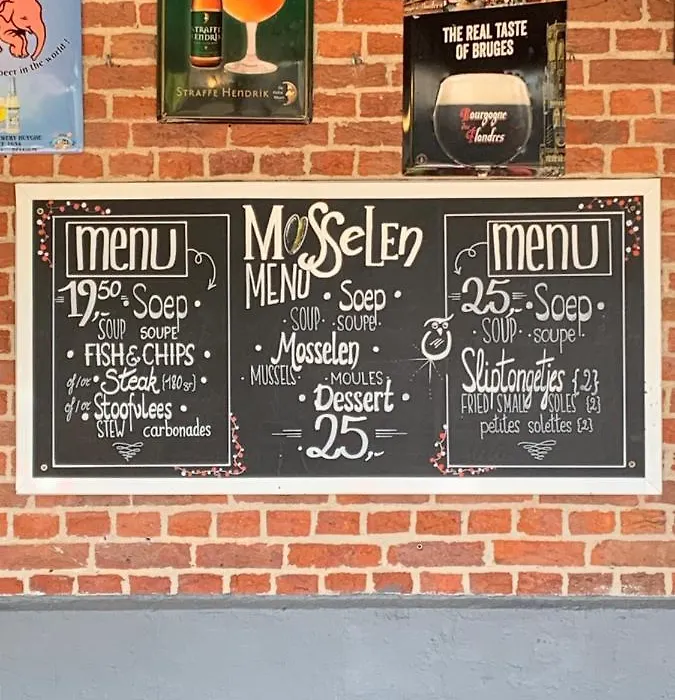 beer in the world!
BREWERY HUYGHE
STRAFFE
HENDRIK
STRAFFE HENDRIK
THE REAL TASTE
OF BRUGES
Bourgogne
des
Flandres
menu
19,50,-
Soep
SOUP soupe
FISH & CHIPS
of/or Steak (180 gr)
of/or Stoofvlees
STEW carbonades
MOSSELEN
MENU
Soep
SOUP soupe
Mosselen
MUSSELS MOULES
Dessert
25,-
menu
25,- Soep
SOUP soupe
Sliptongetjes {2}
FRIED SMALL SOLES {2}
petites solettes {2}